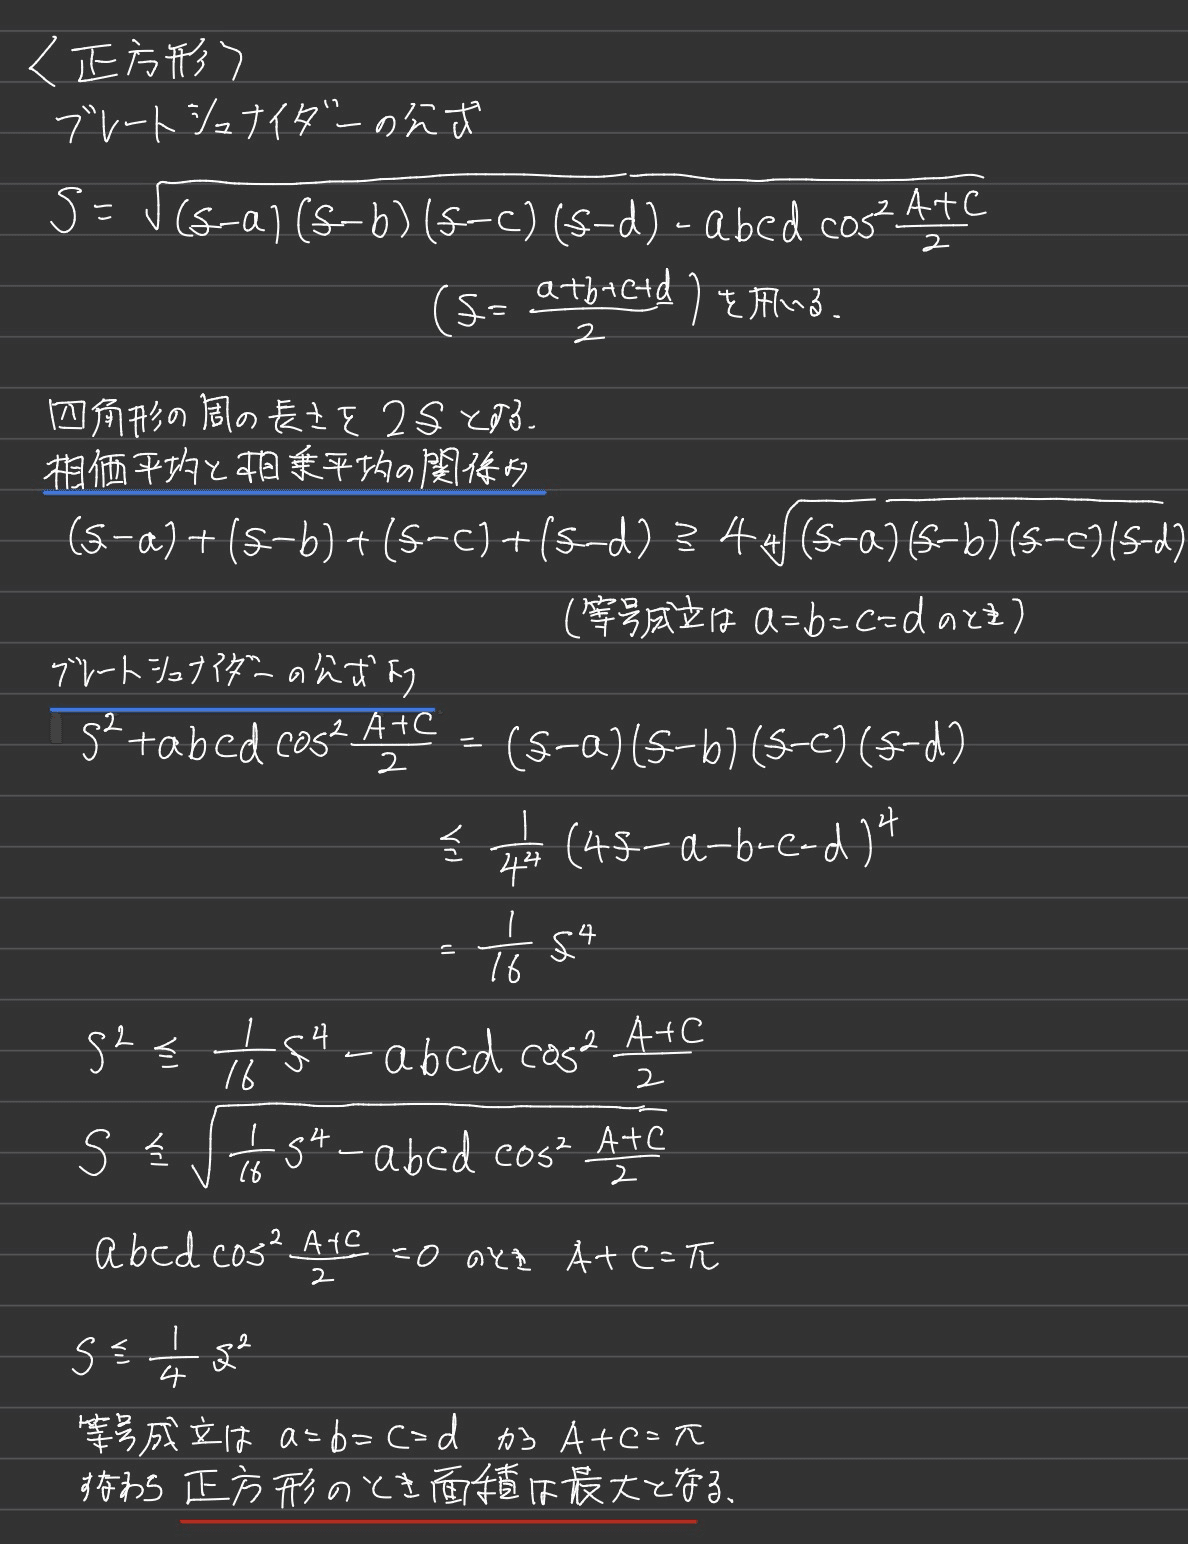 〈正方形〉
ブレートシュナイダーの公式
S = √((s-a)(s-b)(s-c)(s-d) - abcd cos² (A+C)/2)
(s = (a+b+c+d)/2) を用いる.
四角形の周の長さを 2s とする.
相価平均と相乗平均の関係より
(s-a)+(s-b)+(s-c)+(s-d) ≧ 4 ∜((s-a)(s-b)(s-c)(s-d))
(等号成立は a=b=c=d のとき)
ブレートシュナイダーの公式より
S² + abcd cos² (A+C)/2 = (s-a)(s-b)(s-c)(s-d)
≦ 1/4⁴ (4s-a-b-c-d)⁴
= 1/16 s⁴
S² ≦ 1/16 s⁴ - abcd cos² (A+C)/2
S ≦ √(1/16 s⁴ - abcd cos² (A+C)/2)
abcd cos² (A+C)/2 = 0 のとき A+C=π
S ≦ 1/4 s²
等号成立は a=b=c=d かつ A+C=π
すなわち 正方形のとき面積は最大となる.